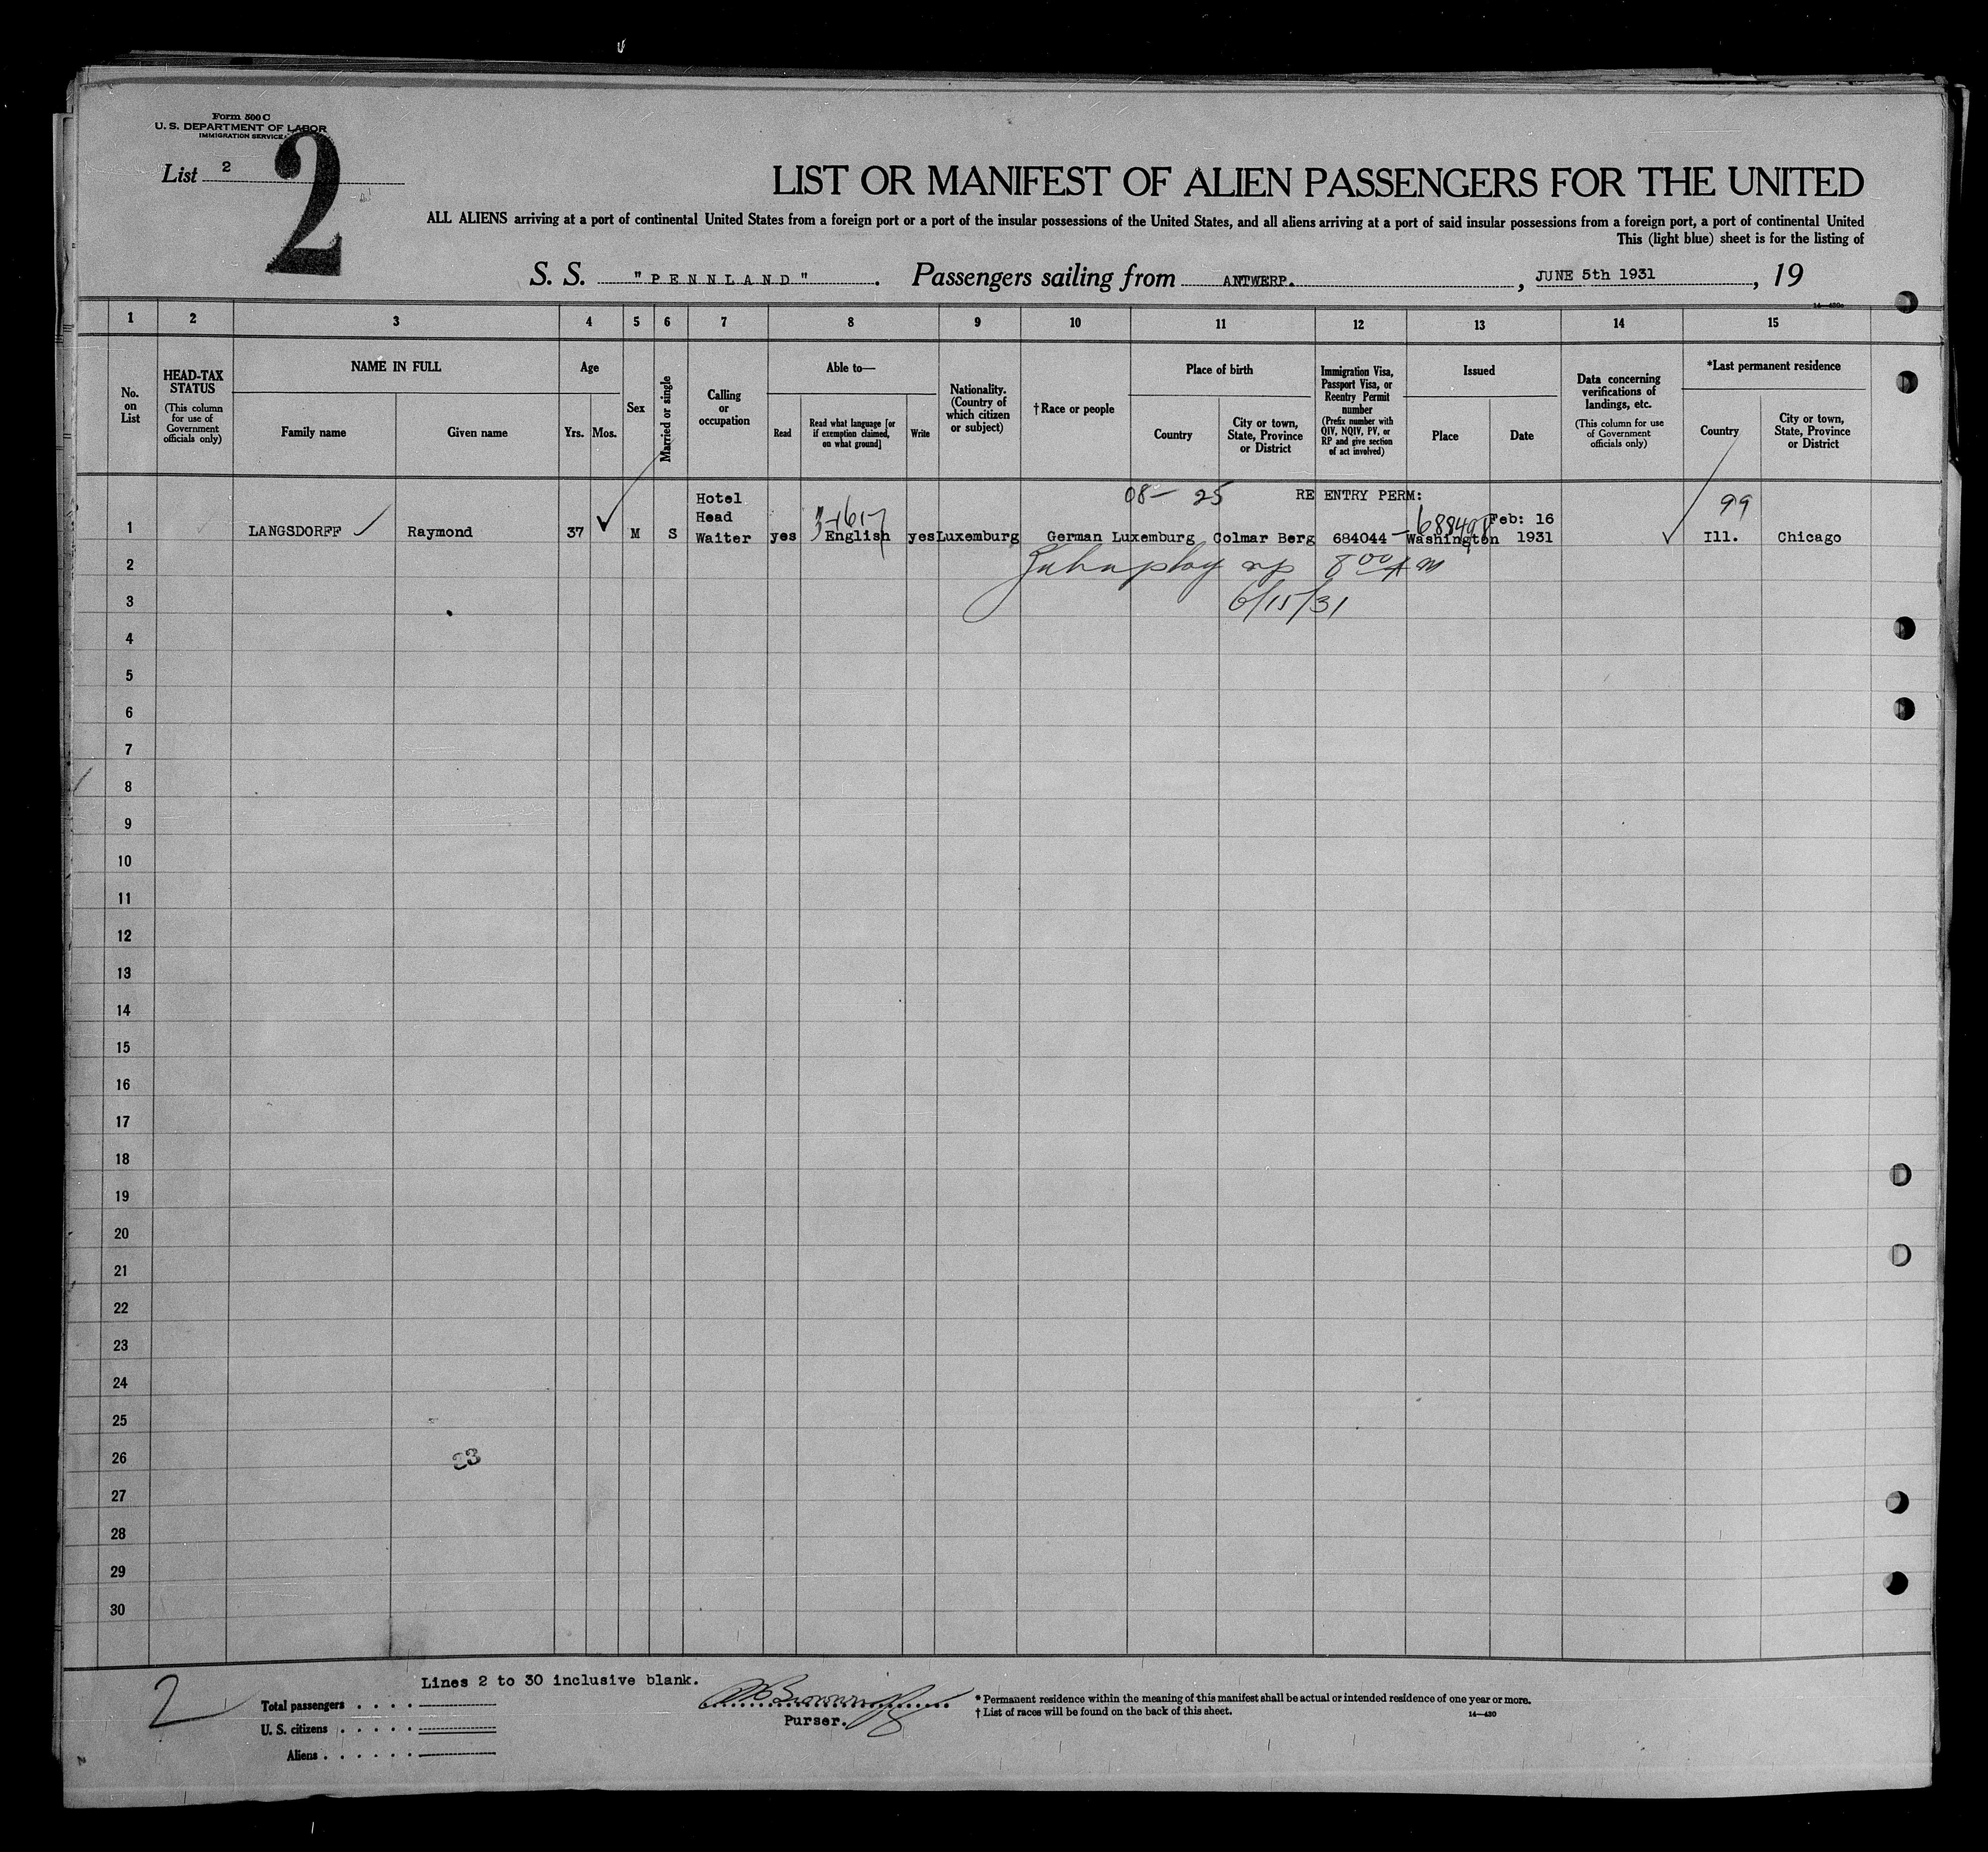 Form 500 C
U. S. DEPARTMENT OF LABOR
IMMIGRATION SERVICE
List 2
2
LIST OR MANIFEST OF ALIEN PASSENGERS FOR THE UNITED
ALL ALIENS arriving at a port of continental United States from a foreign port or a port of the insular possessions of the United States, and all aliens arriving at a port of said insular possessions from a foreign port, a port of continental United
This (light blue) sheet is for the listing of
S. S. "PENNLAND". Passengers sailing from ANTWERP., JUNE 5th 1931, 19
1 2 3 4 5 6 7 8 9 10 11 12 13 14 15
No. on List
HEAD-TAX STATUS
(This column for use of Government officials only)
NAME IN FULL
Family name Given name
Age
Yrs. Mos.
Sex
Married or single
Calling or occupation
Able to—
Read
Read what language [or if exemption claimed, on what ground]
Write
Nationality. (Country of which citizen or subject)
†Race or people
Place of birth
Country
City or town, State, Province or District
Immigration Visa, Passport Visa, or Reentry Permit number
(Prefix number with QIV, NQIV, PV, or RP and give section of act involved)
Issued
Place Date
Data concerning verifications of landings, etc.
(This column for use of Government officials only)
*Last permanent residence
Country
City or town, State, Province or District
08— 25 RE ENTRY PERM: 99
1 LANGSDORFF Raymond 37 M S Hotel Head Waiter yes English yes Luxemburg German Luxemburg Colmar Berg 684044 Washington Feb: 16 1931 Ill. Chicago
2 8 00 AM
3 6/15/31
4
5
6
7
8
9
10
11
12
13
14
15
16
17
18
19
20
21
22
23
24
25
26
27
28
29
30
33
Lines 2 to 30 inclusive blank.
2
Total passengers . . . .
U. S. citizens . . . . .
Aliens . . . . . .
Purser.
* Permanent residence within the meaning of this manifest shall be actual or intended residence of one year or more.
† List of races will be found on the back of this sheet.
14—430